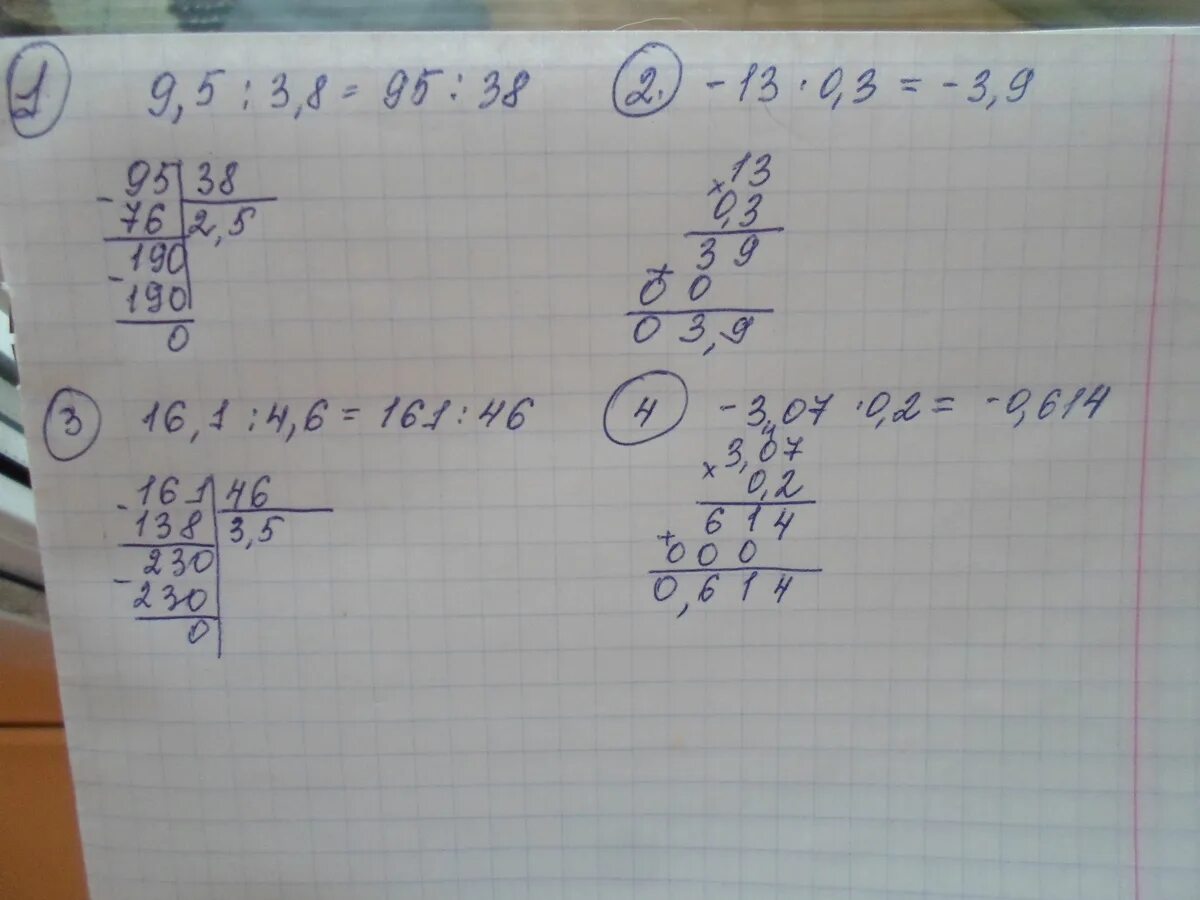 1 9,5 : 3,8 = 95 : 38
95 38
- 76 2,5
190
- 190
0
2. -13 · 0,3 = -3,9
13
× 0,3
3 9
+ 0 0
0 3,9
3 16,1 : 4,6 = 161 : 46
- 161 46
138 3,5
230
- 230
0
4 -3,07 · 0,2 = -0,614
3,07
× 0,2
6 1 4
+ 0 0 0
0,6 1 4